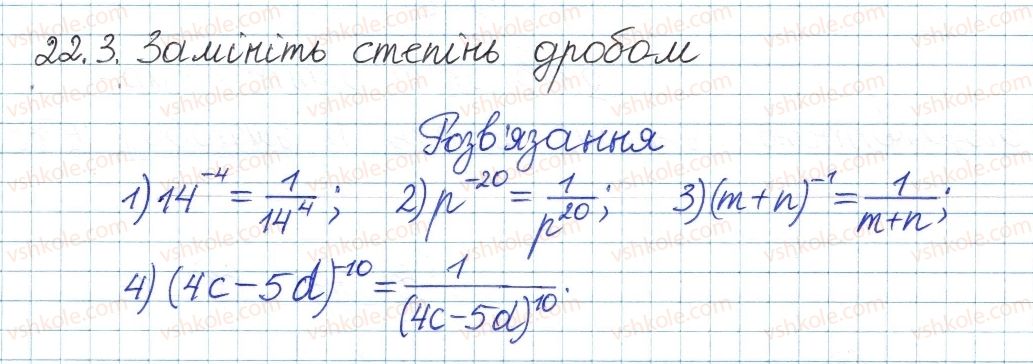 22.3. Замініть степінь дробом
Розв'язання
1) 14^{-4} = \frac{1}{14^4}; 2) p^{-20} = \frac{1}{p^{20}}; 3) (m+n)^{-1} = \frac{1}{m+n};
4) (4c-5d)^{-10} = \frac{1}{(4c-5d)^{10}}.